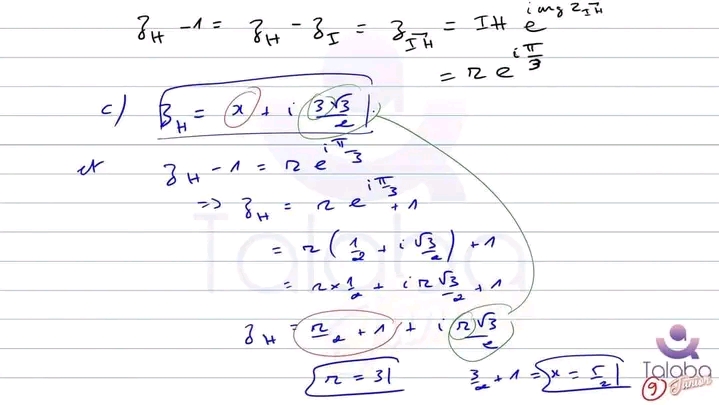 z_H - 1 = z_H - z_I = z_IH = IH e^(i arg z_IH)
= r e^(i π/3)
c) z_H = x + i 3√3/2
et z_H - 1 = r e^(i π/3)
=> z_H = r e^(i π/3) + 1
= r (1/2 + i √3/2) + 1
= r × 1/2 + i r √3/2 + 1
z_H = r/2 + 1 + i r√3/2
r = 3 3/2 + 1 = x = 5/2
Talaba
Talaba
Junior
9